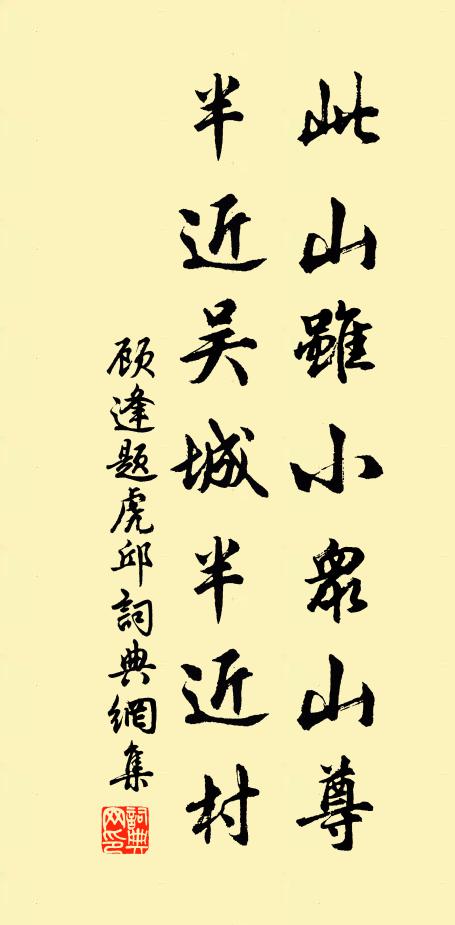 此山雖小衆山尊
半近吴城半近村
顾逢題虎邱詞典網集
詞典网印